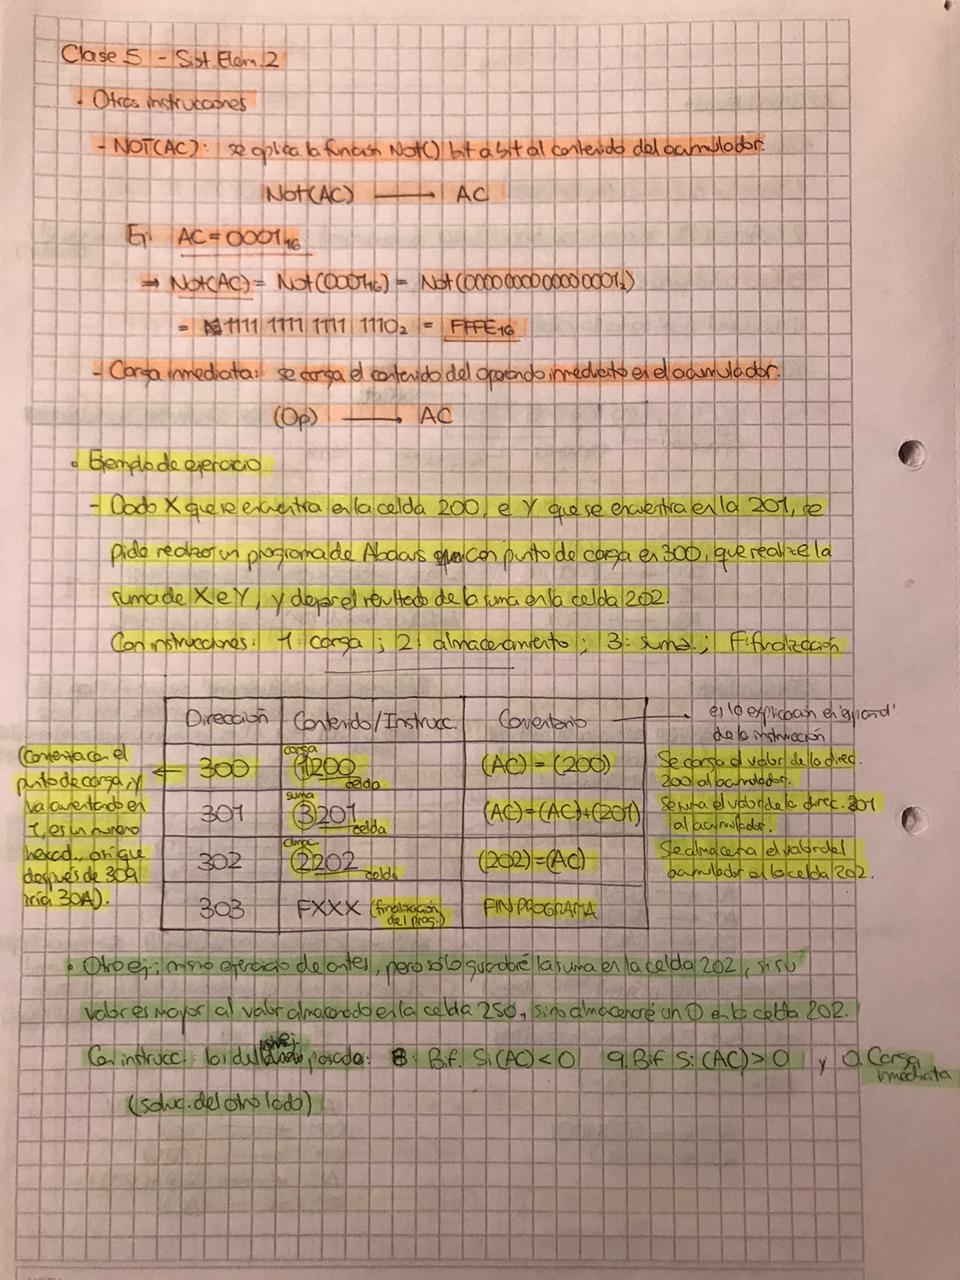 Clase 5 - Sist. Elem. 2
• Otras instrucciones
- NOT(AC): se aplica la función Not() bit a bit al contenido del acumulador.
Not(AC) → AC
Ej: AC = 0001₁₆
⇒ Not(AC) = Not(0001₁₆) = Not(0000000000000001₂)
= 1111 1111 1111 1110₂ = FFFE₁₆
- Carga inmediata: se carga el contenido del operando inmediato en el acumulador.
(Op) → AC
• Ejemplo de ejercicio
- Dado X que se encuentra en la celda 200, e Y que se encuentra en la 201, se
pide realizar un programa de Abacus con punto de carga en 300, que realize la
suma de X e Y, y dejar el resultado de la suma en la celda 202.
Con instrucciones: 1: carga ; 2: almacenamiento ; 3: suma ; F: finalización
Dirección Contenido/Instrucc. Comentario → es la explicación en
de la instrucción
300 carga 1200 celda (AC) = (200) Se carga el valor de la direc.
200 al acumulador.
301 suma 3201 celda (AC)=(AC)+(201) Se suma el valor de la direc. 201
al acumulador.
302 2202 celda (202)=(AC) Se almacena el valor del
acumulador a la celda 202.
303 FXXX (finalización
del prog.) FIN PROGRAMA
(Comienza con el
punto de carga, y
va aumentando en
1, es un número
hexad.,
después de 309
iría 30A). ←
• Otro ej.: mismo ejercicio de antes, pero sólo guardaré la suma en la celda 202, si su
valor es mayor al valor almacenado en la celda 250, sino almacenaré un 0 en la celda 202.
Con instrucc. las del ejer. pasado: 8: Bif. Si (AC) < 0 9. Bif Si (AC) > 0 y 0. Carga
inmediata
(soluc. del otro lado)